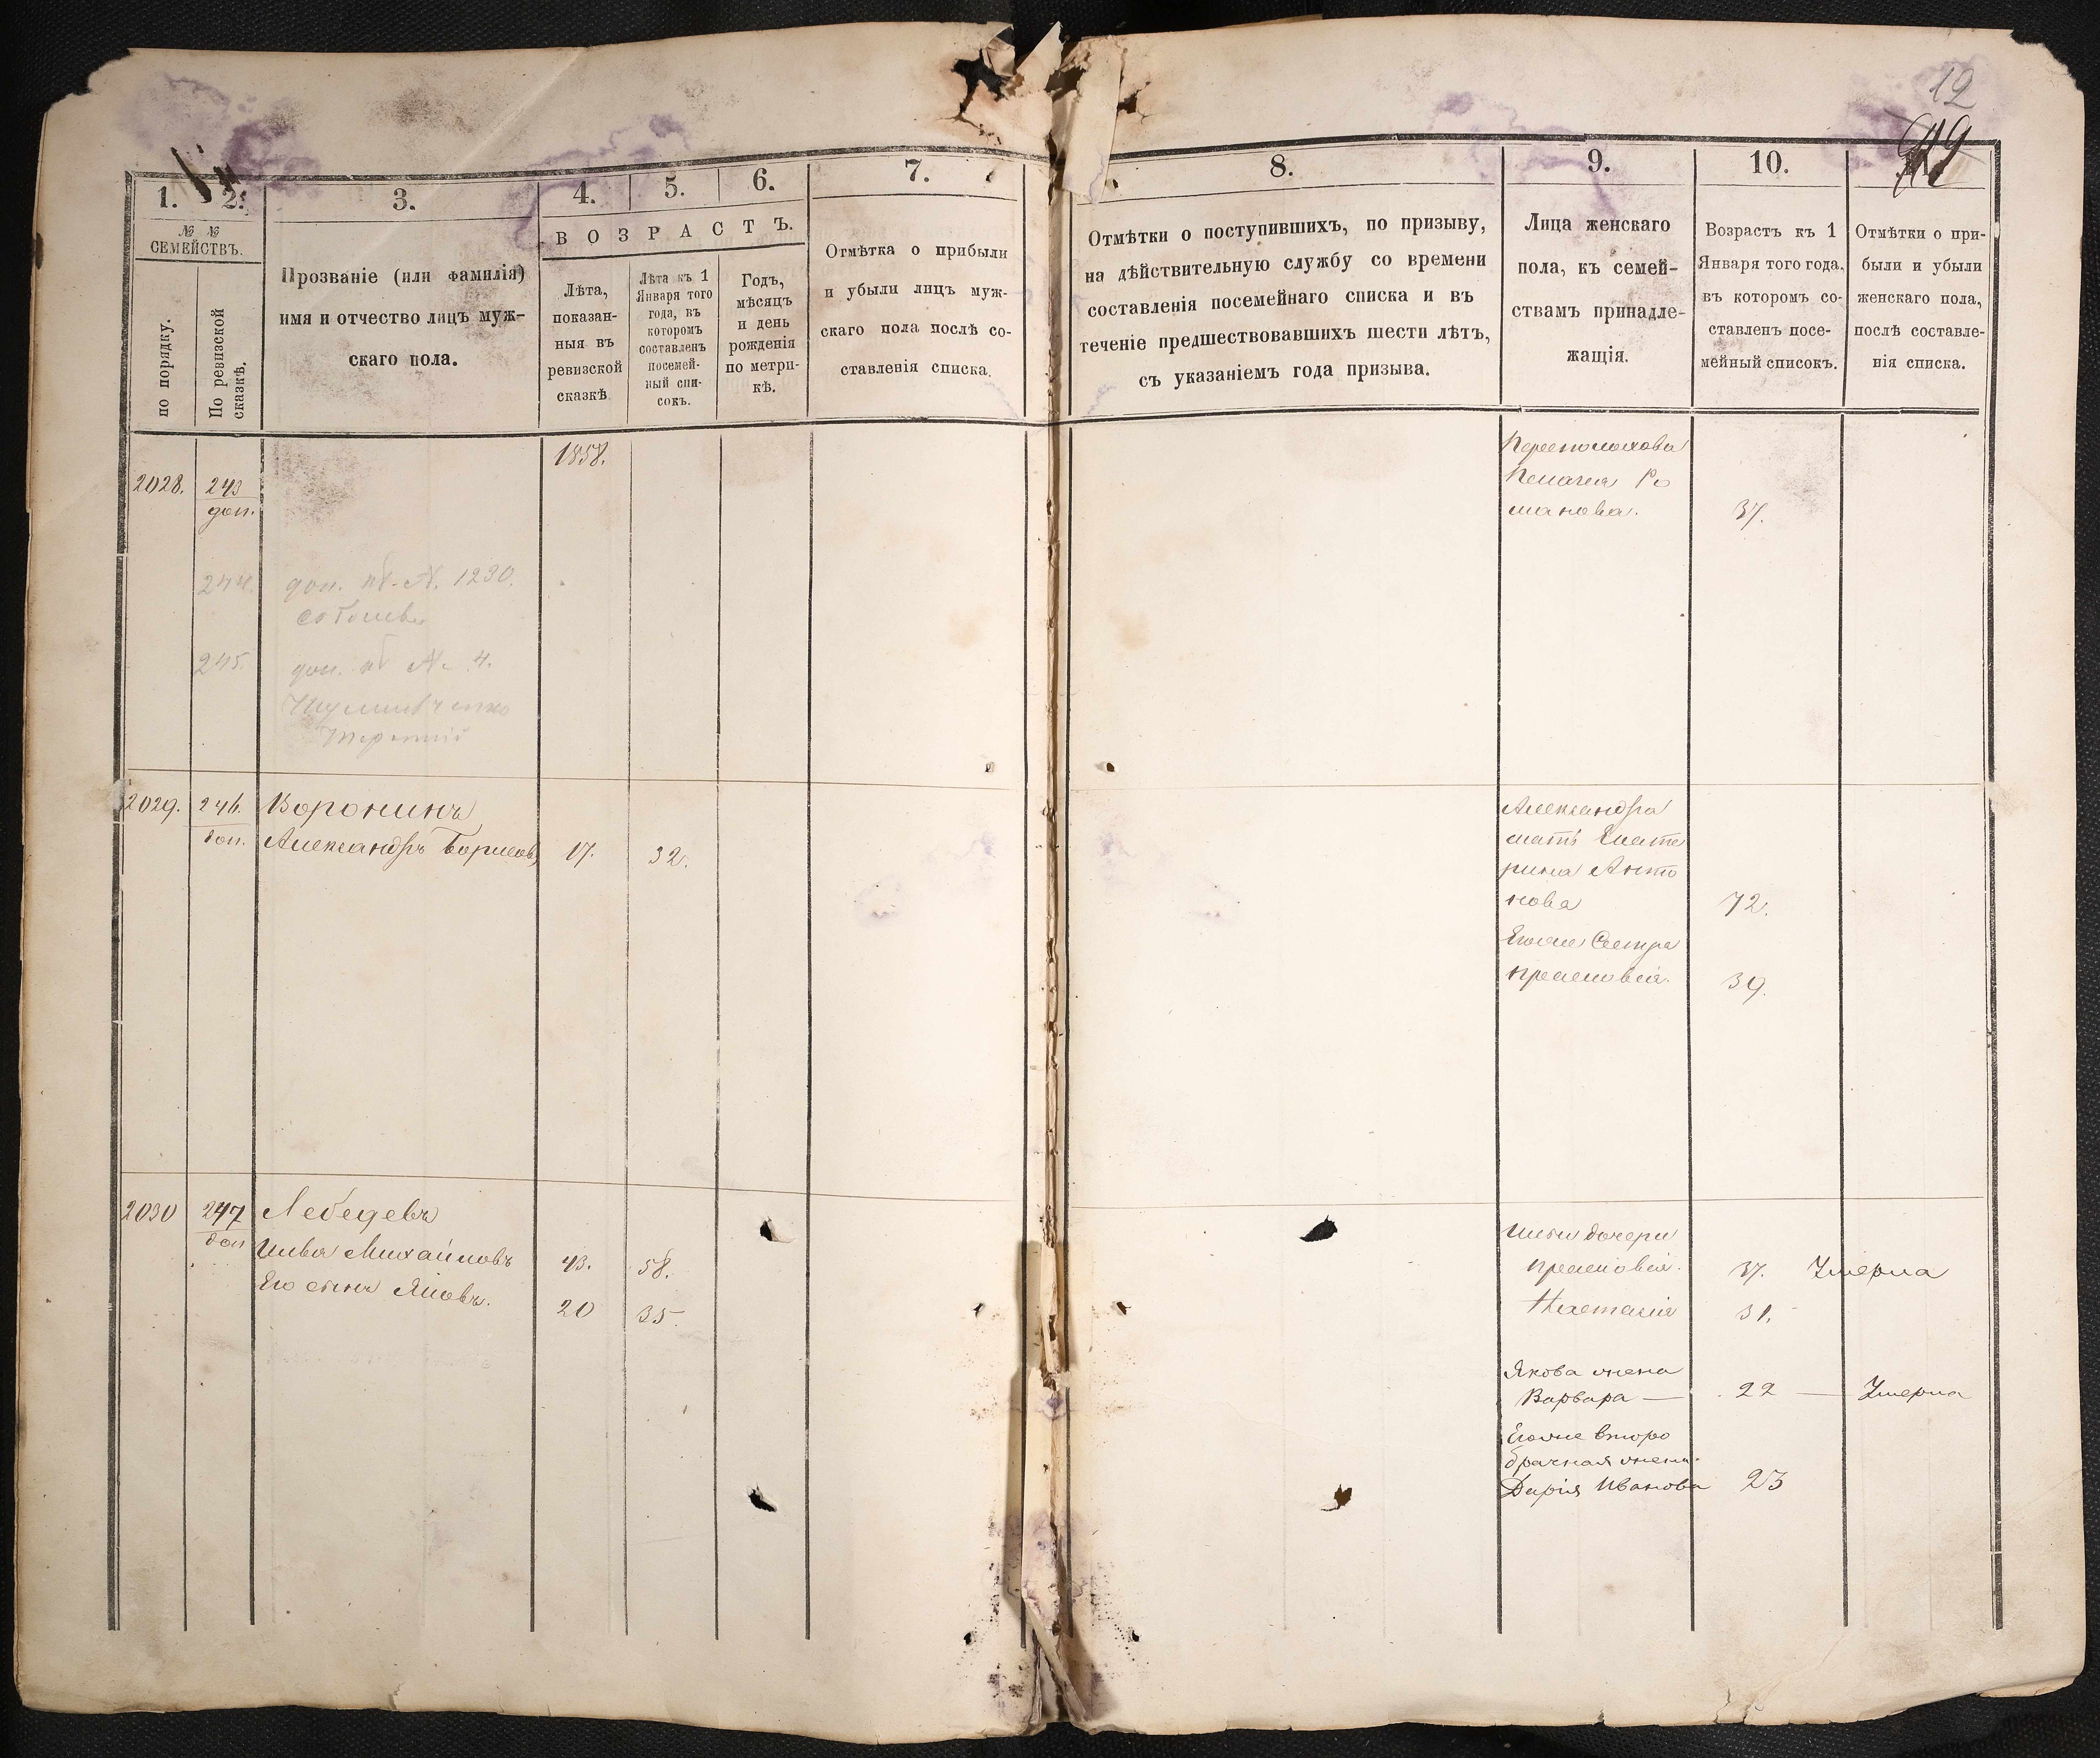 12
1.
2.
3.
4.
5.
6.
7.
8.
9.
10.
№ №
СЕМЕЙСТВЪ.
по порядку.
По ревизской
сказкѣ.
Прозваніе (или фамилія)
имя и отчество лицъ муж-
скаго пола.
ВОЗРАСТЪ.
Лѣта,
показан-
ныя въ
ревизской
сказкѣ
Лѣта къ 1
Января того
года, въ
которомъ
составленъ
посемей-
ный спи-
сокъ.
Годъ,
мѣсяцъ
и день
рожденія
по метри-
кѣ.
Отмѣтка о прибыли
и убыли лицъ муж-
скаго пола послѣ со-
ставленія списка.
Отмѣтки о поступившихъ, по призыву,
на дѣйствительную службу со времени
составленія посемейнаго списка и въ
теченіе предшествовавшихъ шести лѣтъ,
съ указаніемъ года призыва.
Лица женскаго
пола, къ семей-
ствамъ принадле-
жащія.
Возрастъ къ 1
Января того года,
въ которомъ со-
ставленъ посе-
мейный списокъ.
Отмѣтки о при-
были и убыли
женскаго пола,
послѣ составле-
нія списка.
1858.
2028. 243
доп.
Пелагея Ро
манова. 37.
244. доп. № 1230.
245. доп. № 4.
2029. 246. Воронинъ
доп. Александръ Борисовъ 17. 32.
Александра
мать Екате
рина Анто
нова 72.
Егоже Сестра
Прасковія. 39.
2030 247 Лебедевъ
доп Илья Михайловъ 43. 58.
Его сынъ Яковъ. 20 35.
Ильи дочери
Прасковія. 37. Умерла
Настасія 31.
Якова жена
Варвара — 22 — Умерла
Егоже второ
брачная жена
Дарія Иванова 23